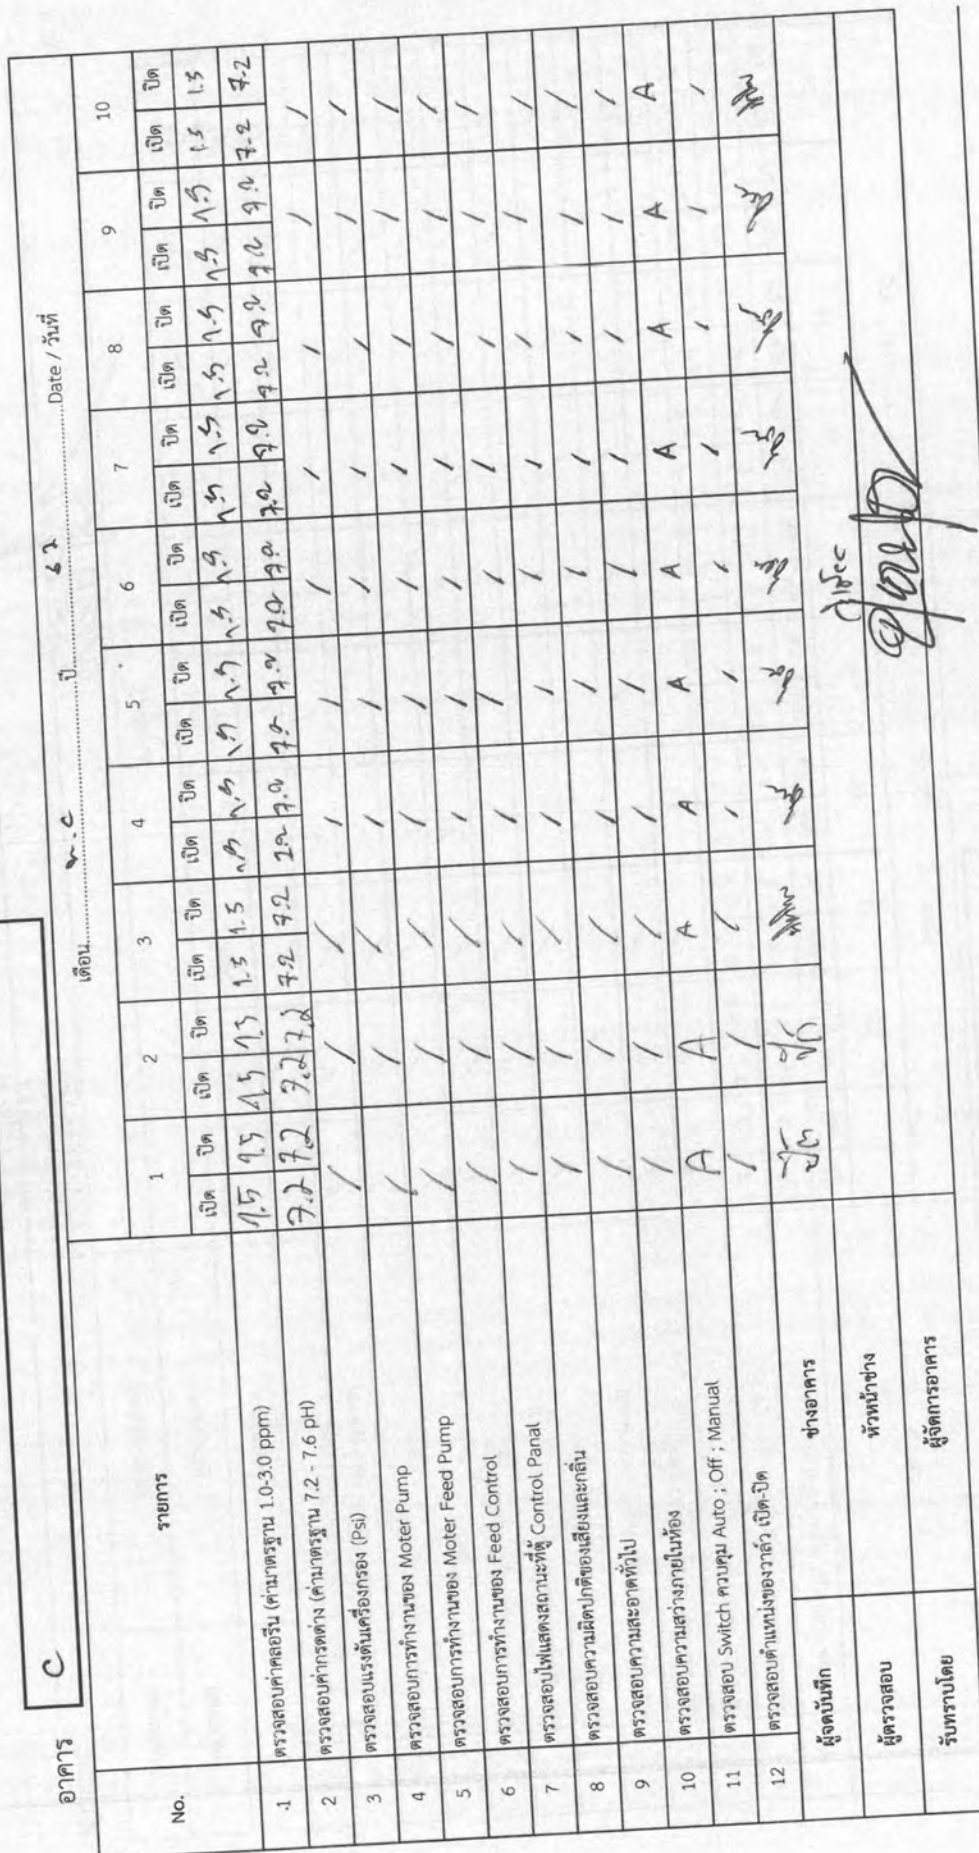 อาคาร C
เดือน ปี 62 Date / วันที่
No. รายการ 1 2 3 4 5 6 7 8 9 10
เปิด ปิด เปิด ปิด เปิด ปิด เปิด ปิด เปิด ปิด เปิด ปิด เปิด ปิด เปิด ปิด เปิด ปิด เปิด ปิด
1 ตรวจสอบค่าคลอรีน (ค่ามาตรฐาน 1.0-3.0 ppm) 1.5 1.5 1.5 1.5 1.5 1.5 1.5 1.5 1.5 1.5 1.5 1.5 1.5 1.5 1.5 1.5 1.5 1.5 1.5 1.5
2 ตรวจสอบค่ากรดด่าง (ค่ามาตรฐาน 7.2 - 7.6 pH) 7.2 7.2 7.2 7.2 7.2 7.2 7.2 7.2 7.2 7.2 7.2 7.2 7.2 7.2 7.2 7.2 7.2 7.2 7.2 7.2
3 ตรวจสอบแรงดันเครื่องกรอง (Psi) / / / / / / / / / /
4 ตรวจสอบการทำงานของ Moter Pump / / / / / / / / / /
5 ตรวจสอบการทำงานของ Moter Feed Pump / / / / / / / / / /
6 ตรวจสอบการทำงานของ Feed Control / / / / / / / / / /
7 ตรวจสอบไฟแสดงสถานะที่ตู้ Control Panal / / / / / / / / / /
8 ตรวจสอบความผิดปกติของเสียงและกลิ่น / / / / / / / / / /
9 ตรวจสอบความสะอาดทั่วไป / / / / / / / / / /
10 ตรวจสอบความสว่างภายในห้อง / / / / / / / / / /
11 ตรวจสอบ Switch ควบคุม Auto ; Off ; Manual A A A A A A A A A A
12 ตรวจสอบตำแหน่งของวาล์ว เปิด-ปิด / / / / / / / / / /
ผู้จดบันทึก ช่างอาคาร
ผู้ตรวจสอบ หัวหน้าช่าง
รับทราบโดย ผู้จัดการอาคาร